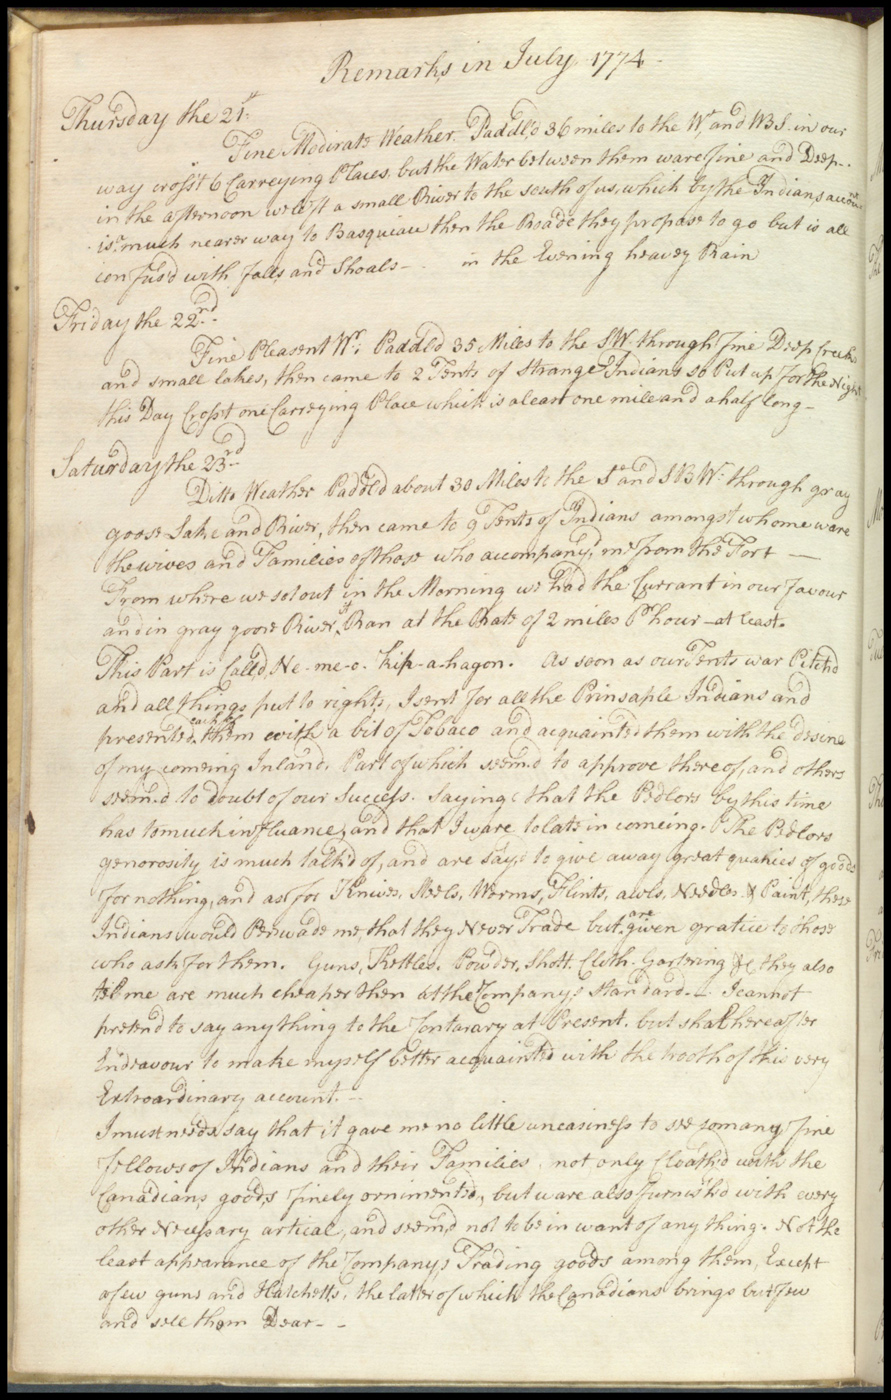 Remarks in July 1774 -
Thursday the 21st
Fine Modirate Weather. Paddl'd 36 miles to the Wt and WBS. in our
way cros't 6 Carreying Places. but the Water between them ware fine and Deep -
in the afternoon we left a small River to the south of us, which by the Indians accout
is a much nearer way to Basquiau then the Roade they propase to go but is all
confus'd with falls and Shoals - in the Evening heavey Rain
Friday the 22nd
Fine Pleasent Wr. Paddl'd 35 Miles to the SW. through fine Deep Creeks
and small lakes, then came to 2 Tents of strange Indians so Put up for the Night
this Day Cros't one Carreying Place which is aleast one mile and a half long -
Saturday the 23rd
Ditto Weather Paddl'd about 30 Miles to the So and SBW. through gray
goose Lake and River, then came to 9 Tents of Indians amongst whome ware
the wives and Families of those who accompany'd me from the Fort -
From where we sot out in the Morning we had the Currant in our favour
and in gray goose River, it Ran at the Rate of 2 miles Pr hour - at least.
This Part is Call'd Ne-me-o-kip-a-hagon. As soon as our Tents war Pitch'd
and all things put to rights, I sent for all the Prinsaple Indians and
presented each of them with a bit of Tobaco and acquainted them with the desire
of my comeing Inland. Part of which seem'd to approve thereof, and others
seem'd to doubt of our Success. Saying that the Pedlors by this time
has to much influance, and that I ware to late in comeing. The Pedlors
generosity is much talk'd of, and are say'd to give away great quanties of goods
for nothing, and as for Knives, Steels, Worms, Flints, awls, Needles & Paint, these
Indians would Perswade me, that they Never Trade but are given gratice to those
who ask for them. Guns, Kettles, Powder, Shott, Cloth, Gartering &c they also
tell me are much cheaper then at the Company,s Standard. - I cannot
pretend to say any thing to the Contarary at Present. but shall hereafter
Endeavour to make myself better acquainted with the trooth of this very
Extroardinary account. -
I must needs say that it gave me no little uneasiness to see so many fine
fellows of Indians and their Families not only Cloath'd with the
Canadians goods finely ornimented, but ware also furnish'd with every
other Necessary artical, and seem'd not to be in want of any thing. Not the
least appearance of the Company,s Trading goods among them, Except
a few guns and Hatchetts, the latter of which the Canadians brings but few
and sell them Dear - -